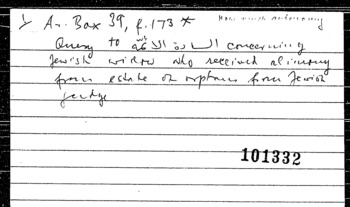 Ar. Box 39, f. 173 *
Query to السادة الأئمة concerning
Jewish widow who received alimony
from estate of orphans from Jewish
judge
101332